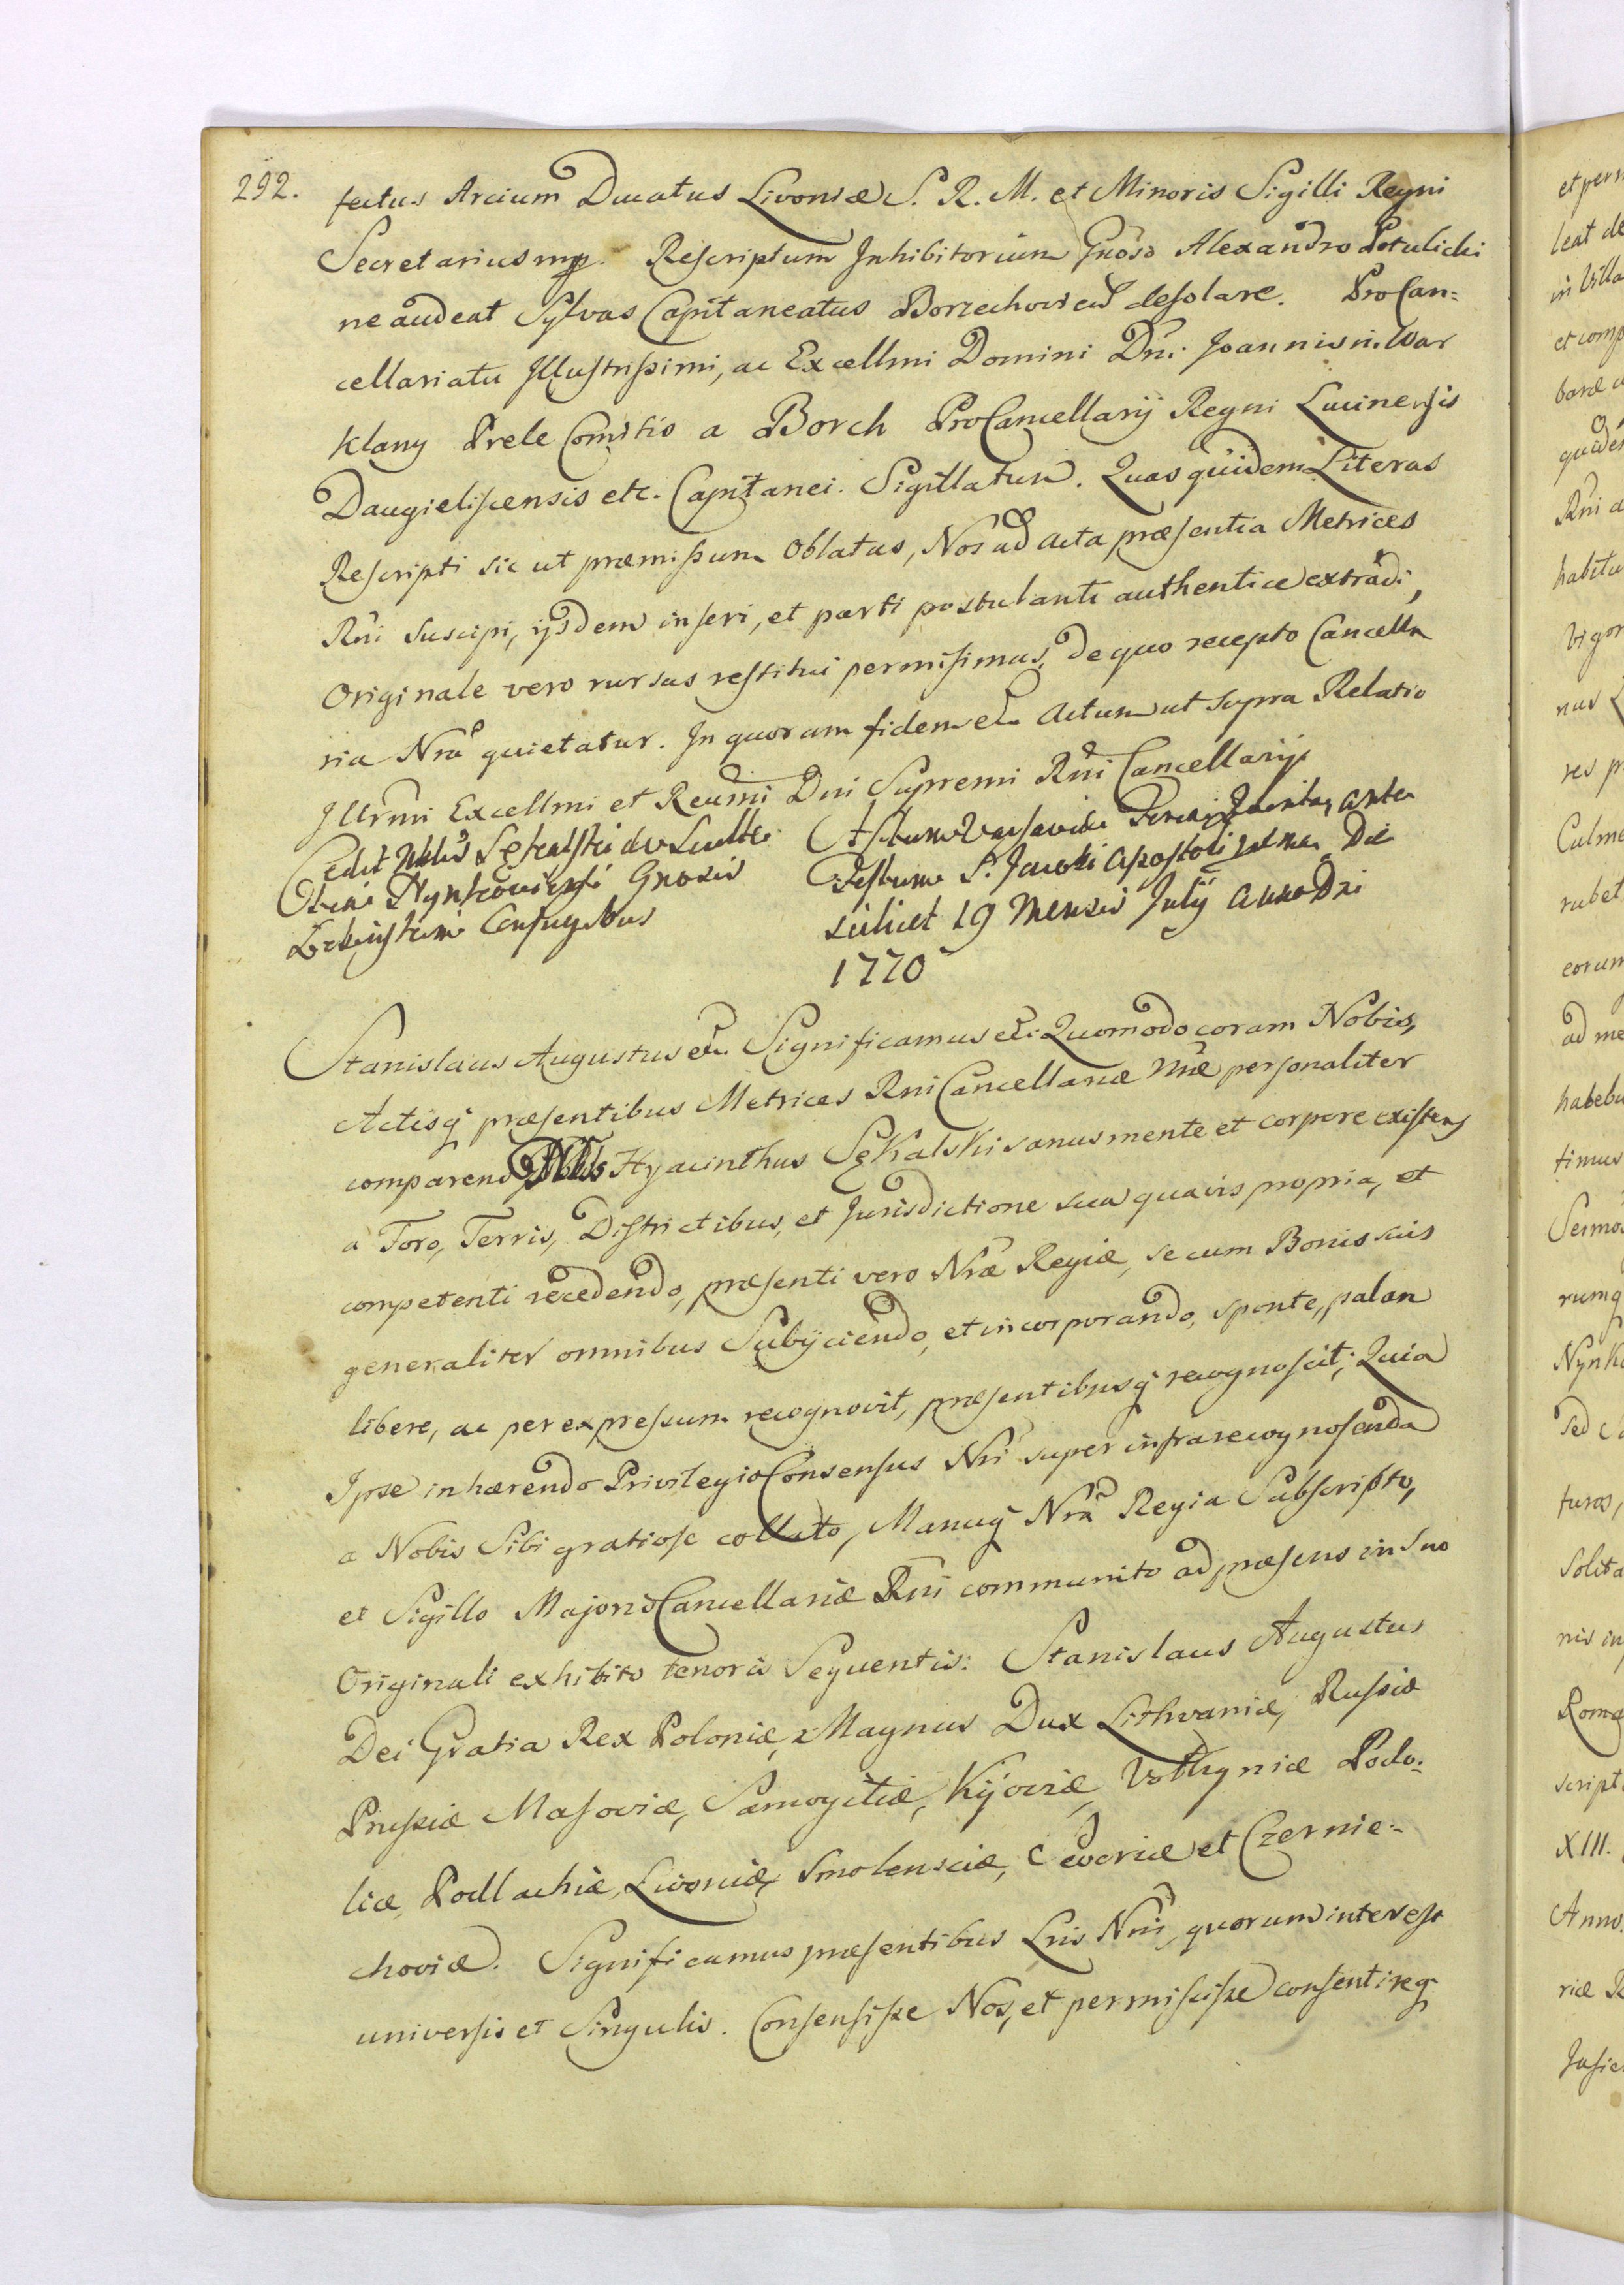 292.
fectus Arcium Ducatus Livoniæ S. R. M. et Minoris Sigilli Regni
Secretarius mp. Rescriptum Inhibitorium Gnoso Alexandro Potulicki
ne audeat Sylvas Capitaneatus Borzechoviens desolare. ProCan=
cellariatu Illustrissimi, ac Excellmi Domini Dni Joannis in War
klany Prele Comitis a Borch ProCancellarij Regni Lucinensis
Daugieliscensis etc. Capitanei. Sigillatum. Quas quidem Literas
Rescripti sic ut præmissum Oblatas, Nos ad Acta præsentia Metrices
Rni Suscipi, ijsdem inseri, et parti postulanti authentice extradi,
Originale vero rursus restitui permisimus, de quo recepto Cancella
ria Nra quietatur. In quorum fidem etc. Actum ut supra Relatio
Illrmi Excellmi et Rendmi Dni Supremi Rni Cancellarij
Cedit Nblis Sękalski de
Nynkoviensi Gnosis
Conjugibus
Actum Varsaviæ Feria Quinta ante
Festum S. Jacobi Apostoli Die
scilicet 19 Mensis Julij Anno Dni
1770
Stanislaus Augustus etc. Significamus etc. Quomodo coram Nobis,
Actisq præsentibus Metrices Rni Cancellariæ Nræ personaliter
comparens Nblis Hyacinthus Sękalski sanus mente et corpore existens
a Foro, Terris, Districtibus, et Jurisdictione sua quavis propria, et
competenti recedendo, præsenti vero Nræ Regiæ, se cum Bonis suis
generaliter omnibus Subijciendo, et incorporando, sponte, palam
libere, ac per expressum recognovit, præsentibusq recognoscit; Quia
Ipse inhærendo Privilegio Consensus Nri super infra recognoscenda
a Nobis Sibi gratiose collato, Manuq Nra Regia Subscripto,
et Sigillo Majoris Cancellariæ Rni communito ad præsens in Suo
Originali exhibito tenoris Sequentis: Stanislaus Augustus
Dei Gratia Rex Poloniæ, Magnus Dux Lithvaniæ, Russiæ
Prussiæ Masoviæ, Samogitiæ, Kijoviæ, Volhyniæ Podo=
liæ, Podlachiæ, Livoniæ, Smolensciæ, Severiæ et Czernie=
choviæ. Significamus præsentibus Lris Nris, quorum interest
universis et Singulis. Consensisse Nos, et permisisse consentireq